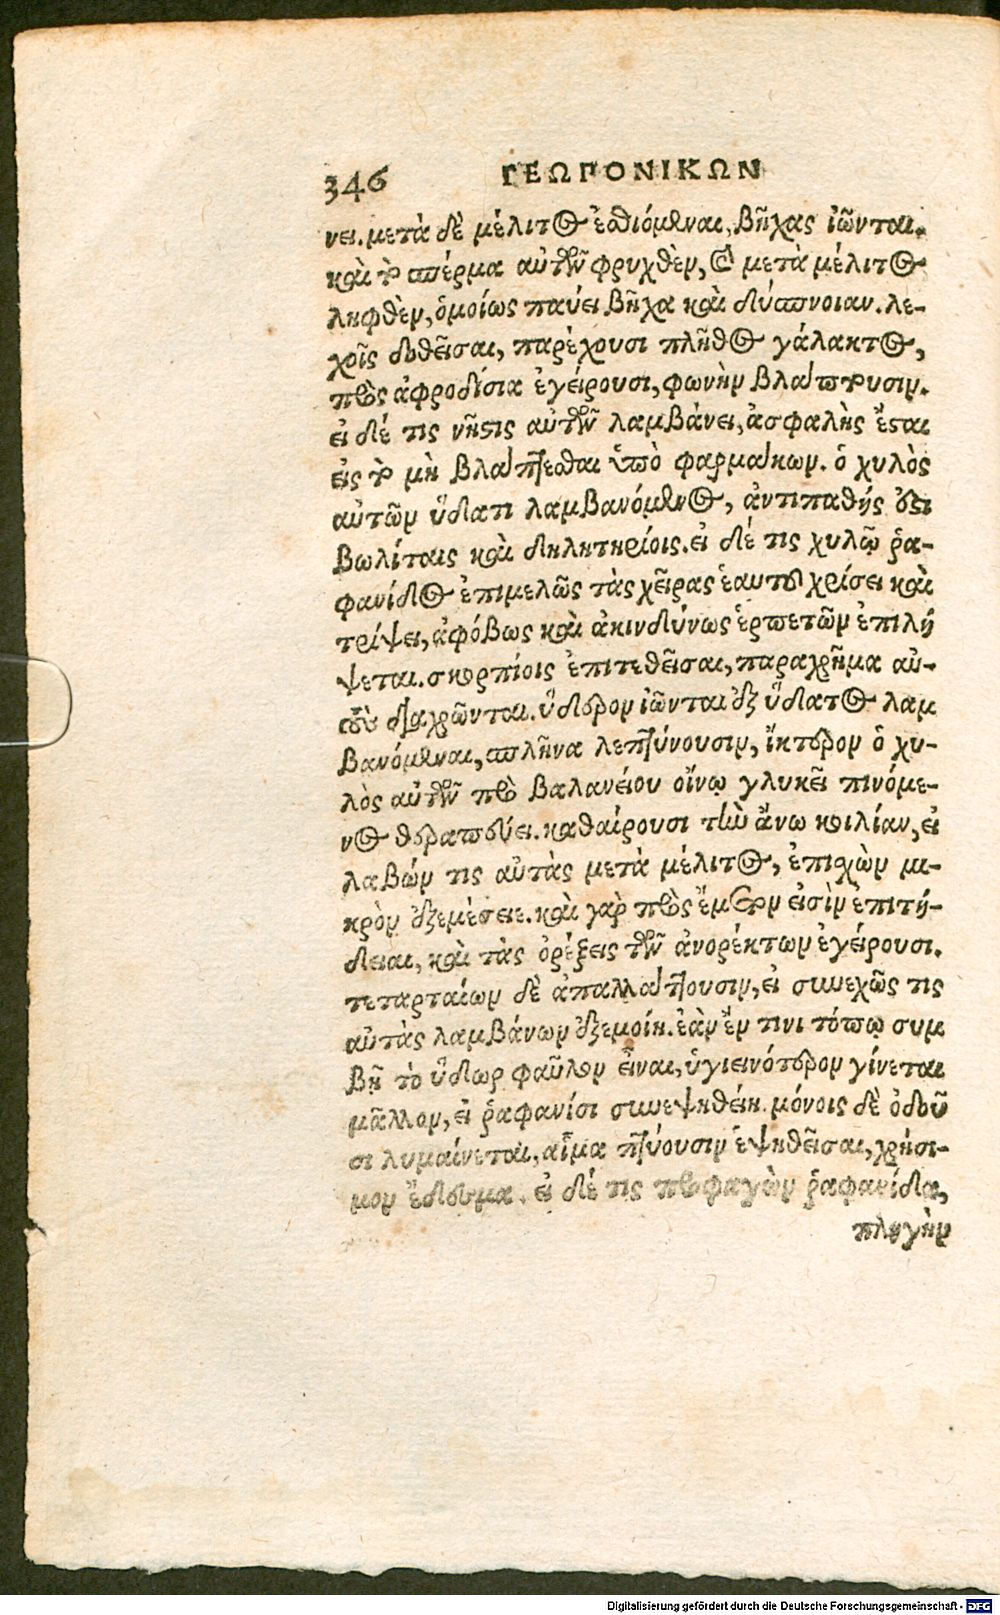 346 ΓΕΩΠΟΝΙΚΩΝ
νει. μετὰ δὲ μέλιτος ἐσθιόμεναι, βῆχας ἰῶνται.
καὶ τὸ σπέρμα αὐτῶν φρυχθὲν, καὶ μετὰ μέλιτος
ληφθὲν, ὁμοίως παύει βῆχα καὶ δύσπνοιαν. λε-
χοῖς δοθεῖσαι, παρέχουσι πλῆθος γάλακτος,
πρὸς ἀφροδίσια ἐγείρουσι, φωνὴν βλάπτουσιν.
εἰ δέ τις νῆστις αὐτῶν λαμβάνει, ἀσφαλὴς ἔσται
εἰς τὸ μὴ βλάπτεσθαι ὑπὸ φαρμάκων. ὁ χυλὸς
αὐτῶν ὕδατι λαμβανόμενος, ἀντιπαθής ἐστι
βωλίταις καὶ δηλητηρίοις. εἰ δέ τις χυλῷ ῥα-
φανίδος ἐπιμελῶς τὰς χεῖρας ἑαυτοῦ χρίσει καὶ
τρίψει, ἀφόβως καὶ ἀκινδύνως ἑρπετῶν ἐπιλή
ψεται. σκορπίοις ἐπιτεθεῖσαι, παραχρῆμα αὐ-
τοὺς διαχρῶνται. ὕδερον ἰῶνται ἐξ ὕδατος λαμ
βανόμεναι, σπλῆνα λεπτύνουσιν, ἴκτερον ὁ χυ-
λὸς αὐτῶν πρὸ βαλανείου οἴνῳ γλυκεῖ πινόμε-
νος θεραπεύει. καθαίρουσι τὴν ἄνω κοιλίαν, εἰ
λαβών τις αὐτὰς μετὰ μέλιτος, ἐπισχὼν μι-
κρὸν ἐξεμέσειε. καὶ γὰρ πρὸς ἔμετον εἰσὶν ἐπιτή-
δειαι, καὶ τὰς ὀρέξεις τῶν ἀνορέκτων ἐγείρουσι.
τεταρταίων δὲ ἀπαλλάττουσιν, εἰ συνεχῶς τις
αὐτὰς λαμβάνων ἐξεμοίη. ἐὰν ἔν τινι τόπῳ συμ
βῇ τὸ ὕδωρ φαῦλον εἶναι, ὑγιεινότερον γίνεται
μᾶλλον, εἰ ῥαφανίσι συνεψηθείη. μόνοις δὲ ὀδοῦ
σι λυμαίνεται, αἷμα πτύουσιν ἑψηθεῖσαι, χρήσι-
μον ἔδεσμα. εἰ δέ τις προφαγὼν ῥαφανίδα,
πληγὴν
Digitalisierung gefördert durch die Deutsche Forschungsgemeinschaft - DFG